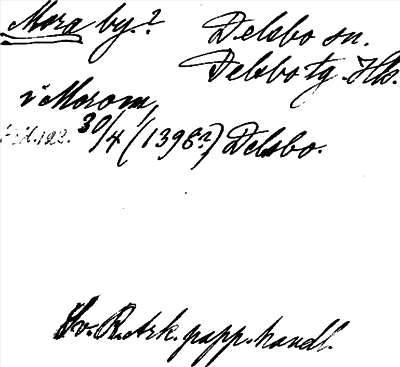 Mora by.? Delsbo sn.
Delsbo tg. Hls.
i Morom,
30/4 (1396?) Delsbo.
Sv. R. Ark. papp. handl.